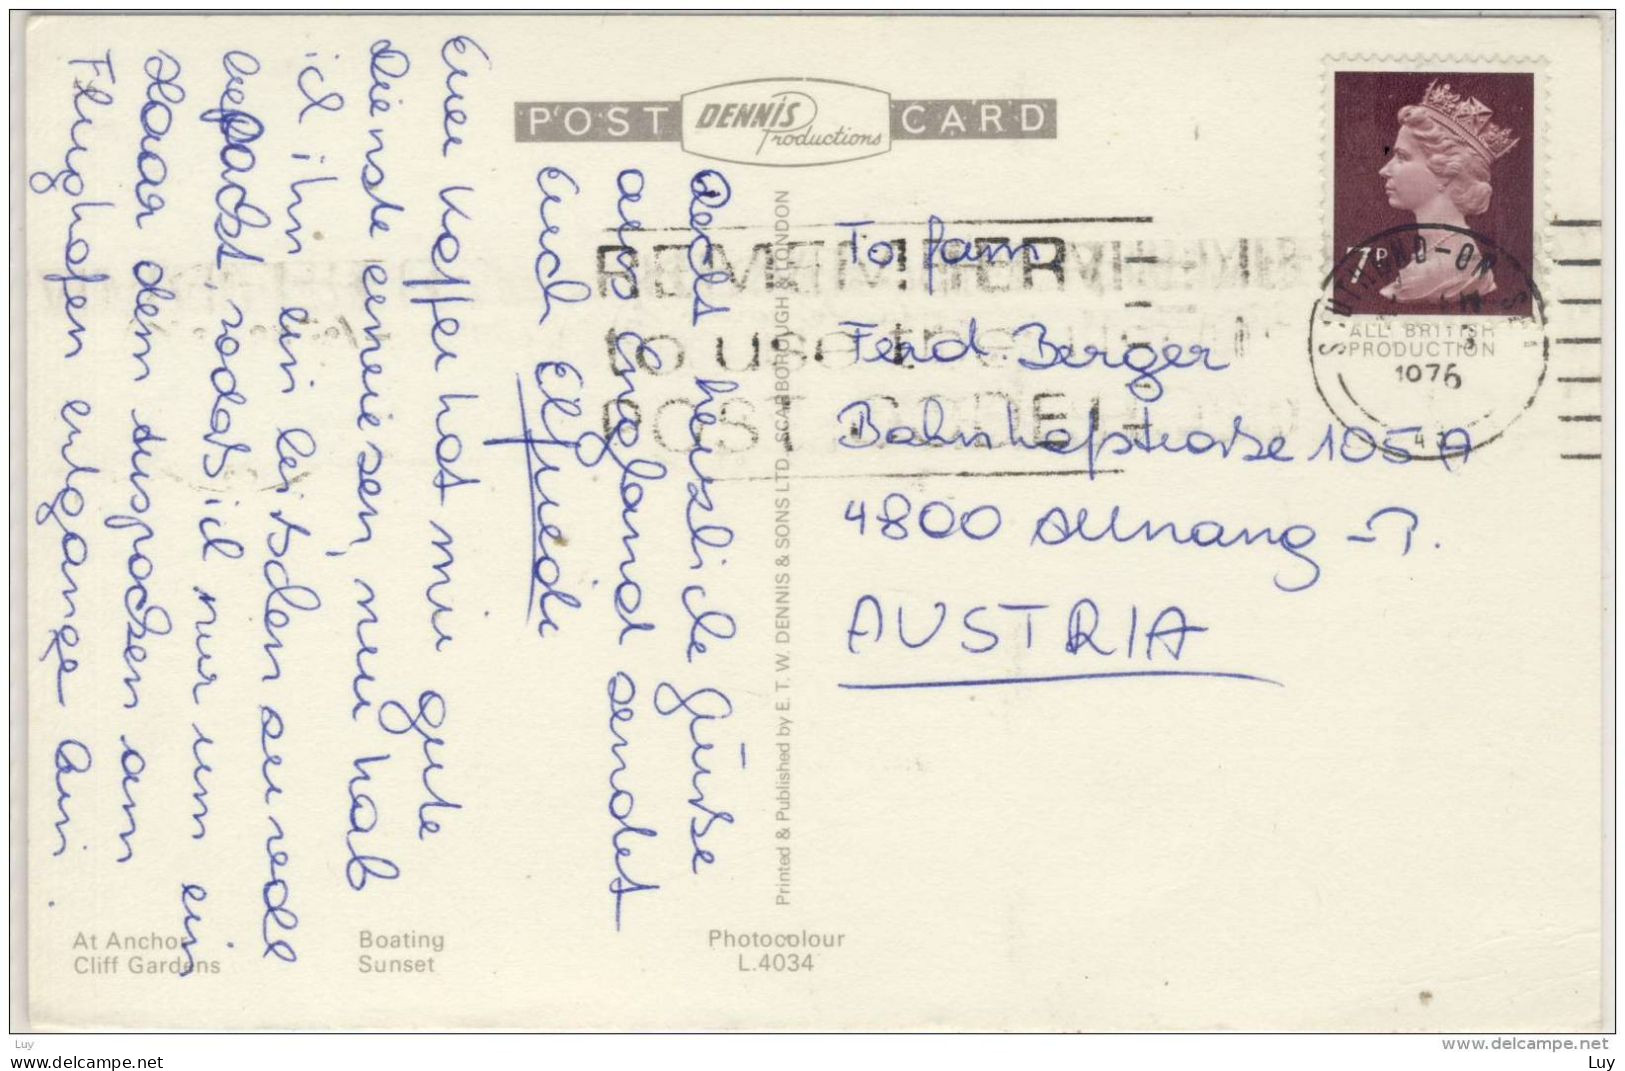 POST DENNIS Productions CARD
7P
SOUTHEND-ON-SE
ALL BRITISH
PRODUCTION
1976
REMEMBER
to use the
POST CODE
To Fam
Ferd. Berger
Bahnhofstraße 105A
4800 Attnang-P.
AUSTRIA
Euer Koffer hat mir gute
Dienste erwiesen, nur hab
ich ihn ein bißchen zu
bepackt, sodaß ich nur um ein
Haar dem Auspacken am
Flughafen entgangen bin.
Recht herzliche Grüße
aus England sendet
Euch Elfriede
Printed & Published by E. T. W. DENNIS & SONS LTD. SCARBOROUGH & LONDON
At Anchor
Cliff Gardens
Boating
Sunset
Photocolour
L.4034
Luy
www.delcampe.net
www.delcampe.net
Luy